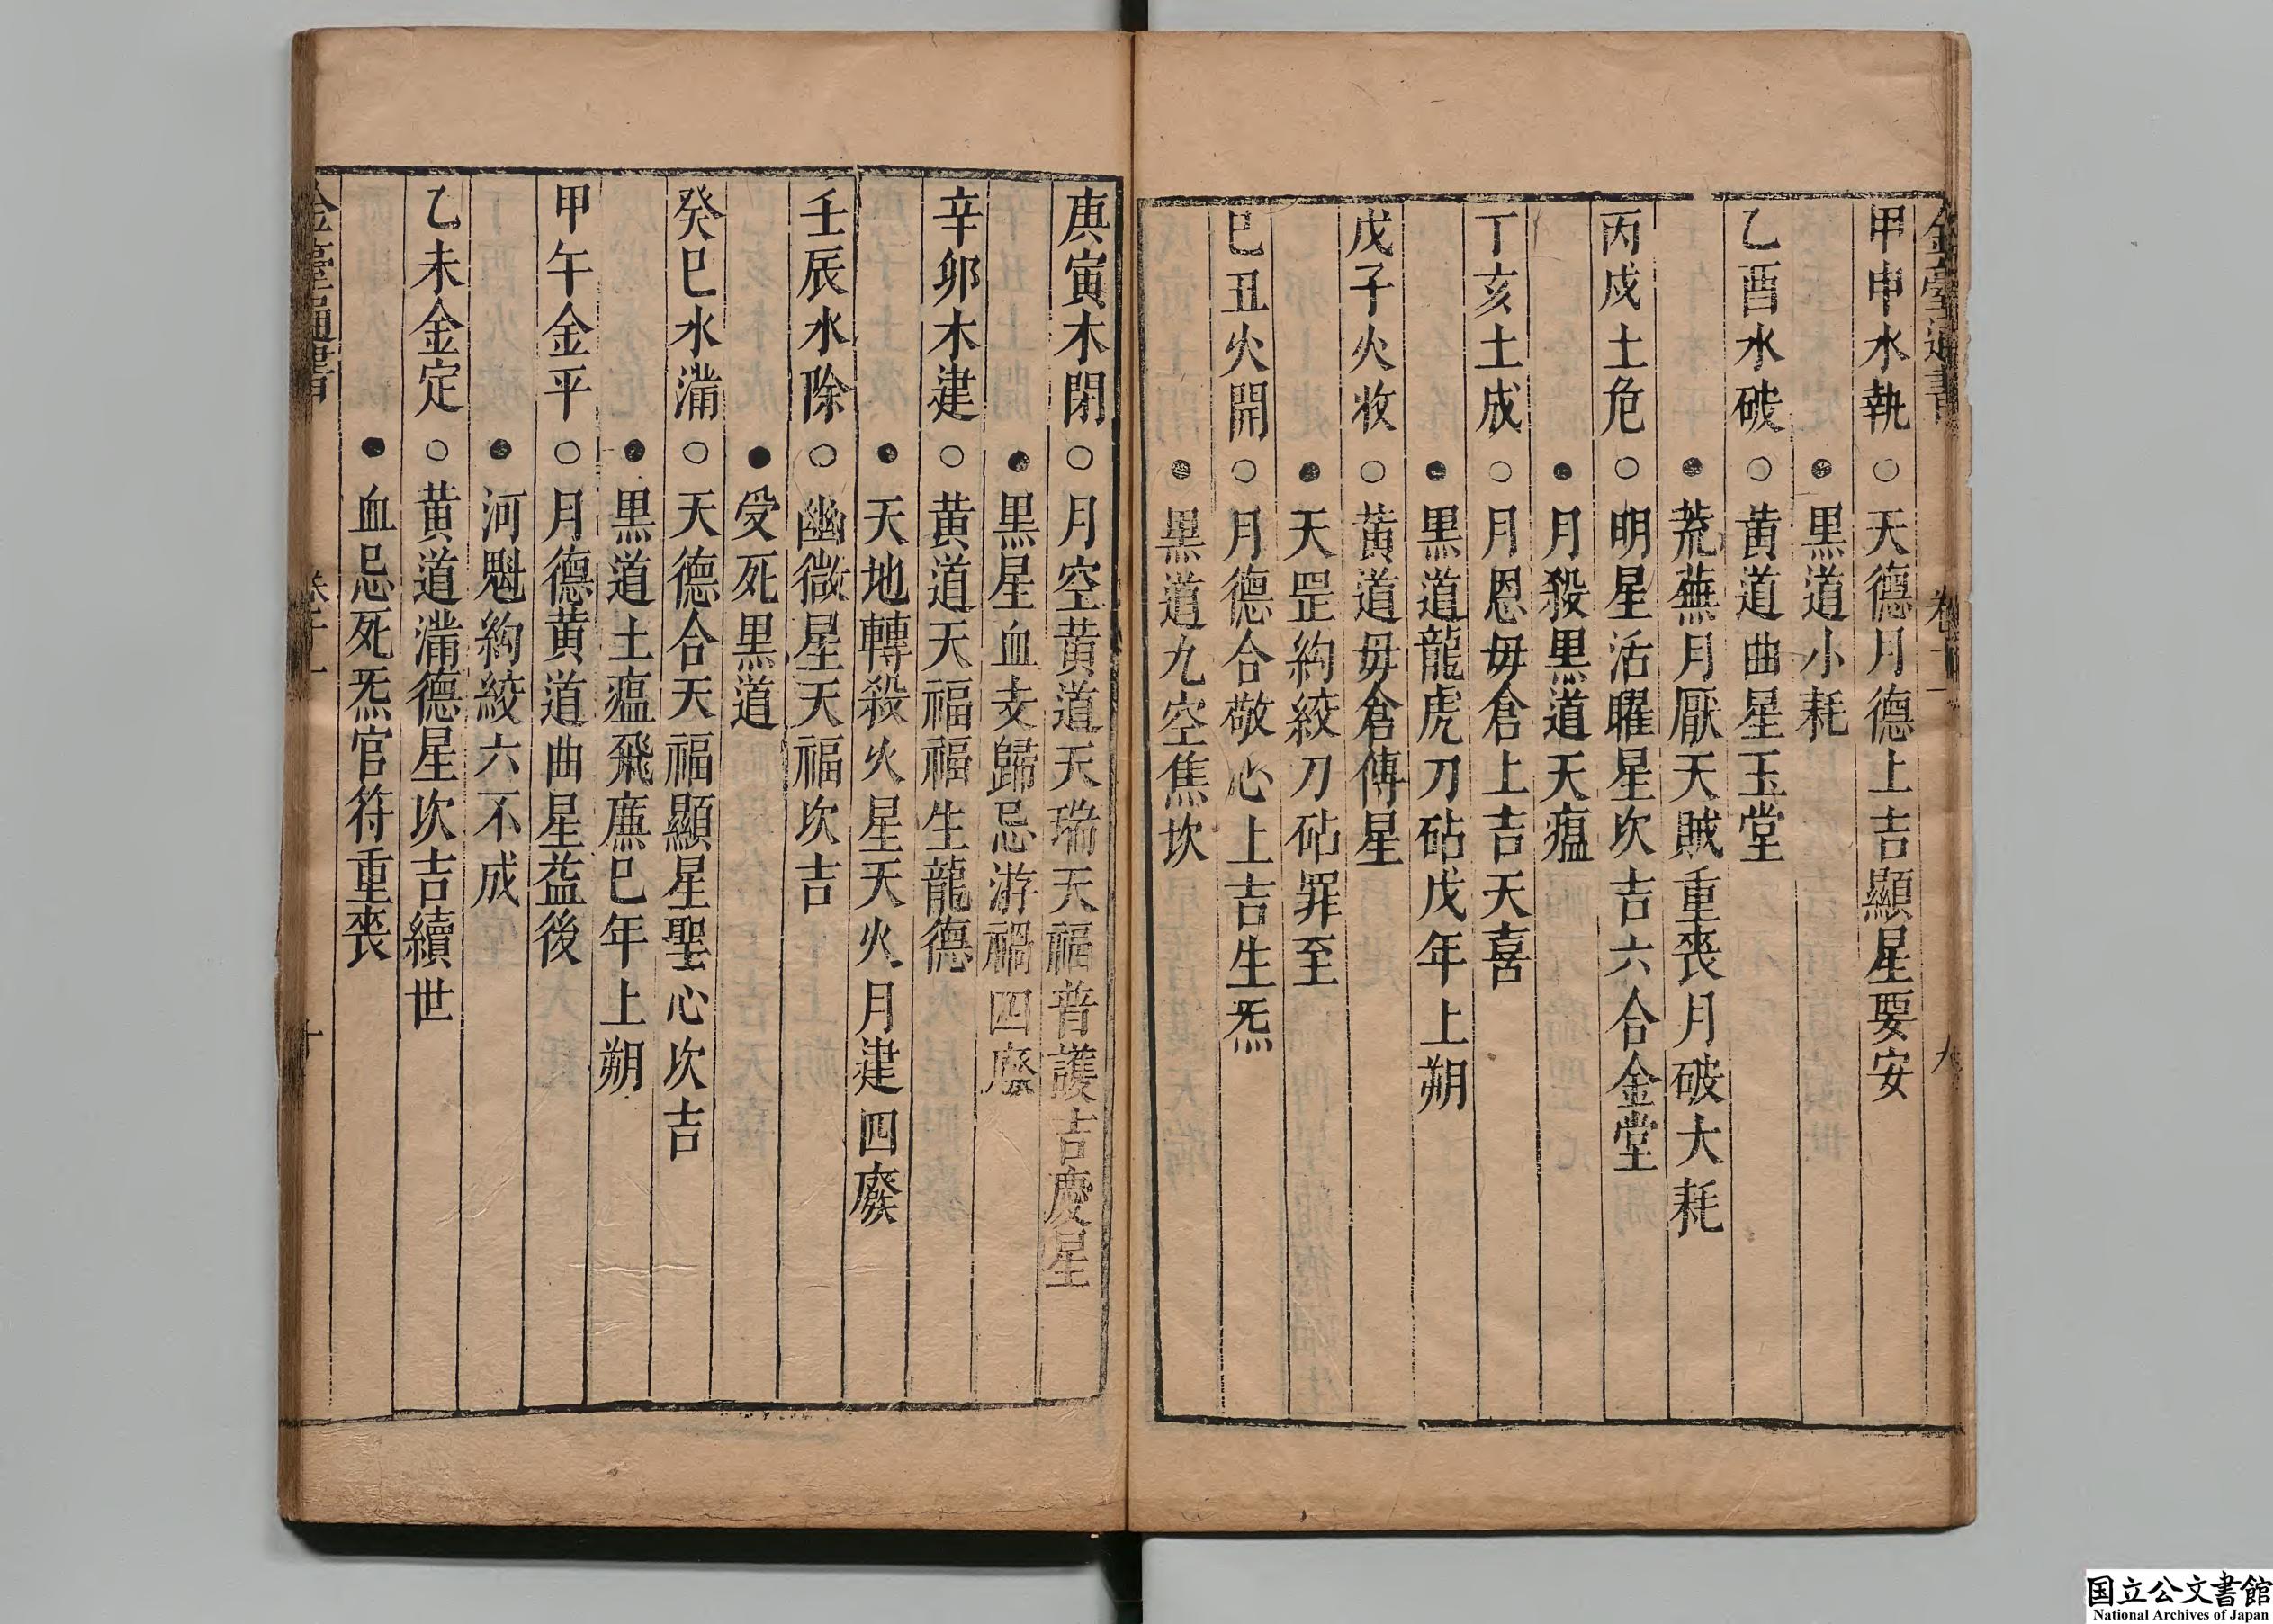 金臺通書 卷十一 九
甲申水執○天德月德上吉顯星要安
●黒道小耗
乙酉水破○黄道曲星玉堂
●荒蕪月厭天賊重喪月破大耗
丙戌土危○明星活曜星次吉六合金堂
●月殺黒道天瘟
丁亥土成○月恩毋倉上吉天喜
●黒道龍虎刀砧戊年上朔
戊子火收○黄道毋倉傳星
●天罡絇絞刀砧罪至
巳丑火開○月德合敬心上吉生炁
●黒道九空焦坎
庚寅木閉○月空黄道天瑞天福普護吉慶星
●黒星血支歸忌游禍四廢
辛卯木建○黄道天福福生龍德
●天地轉殺火星天火月建四廢
壬辰水除○幽微星天福次吉
●受死黒道
癸巳水滿○天德合天福顯星聖心次吉
●黒道土瘟飛廉巳年上朔
甲午金平○月德黄道曲星益後
●河魁絇絞六不成
乙未金定○黄道滿德星次吉續世
●血忌死炁官符重喪
金臺通書 卷十一 十
国立公文書館
National Archives of Japan